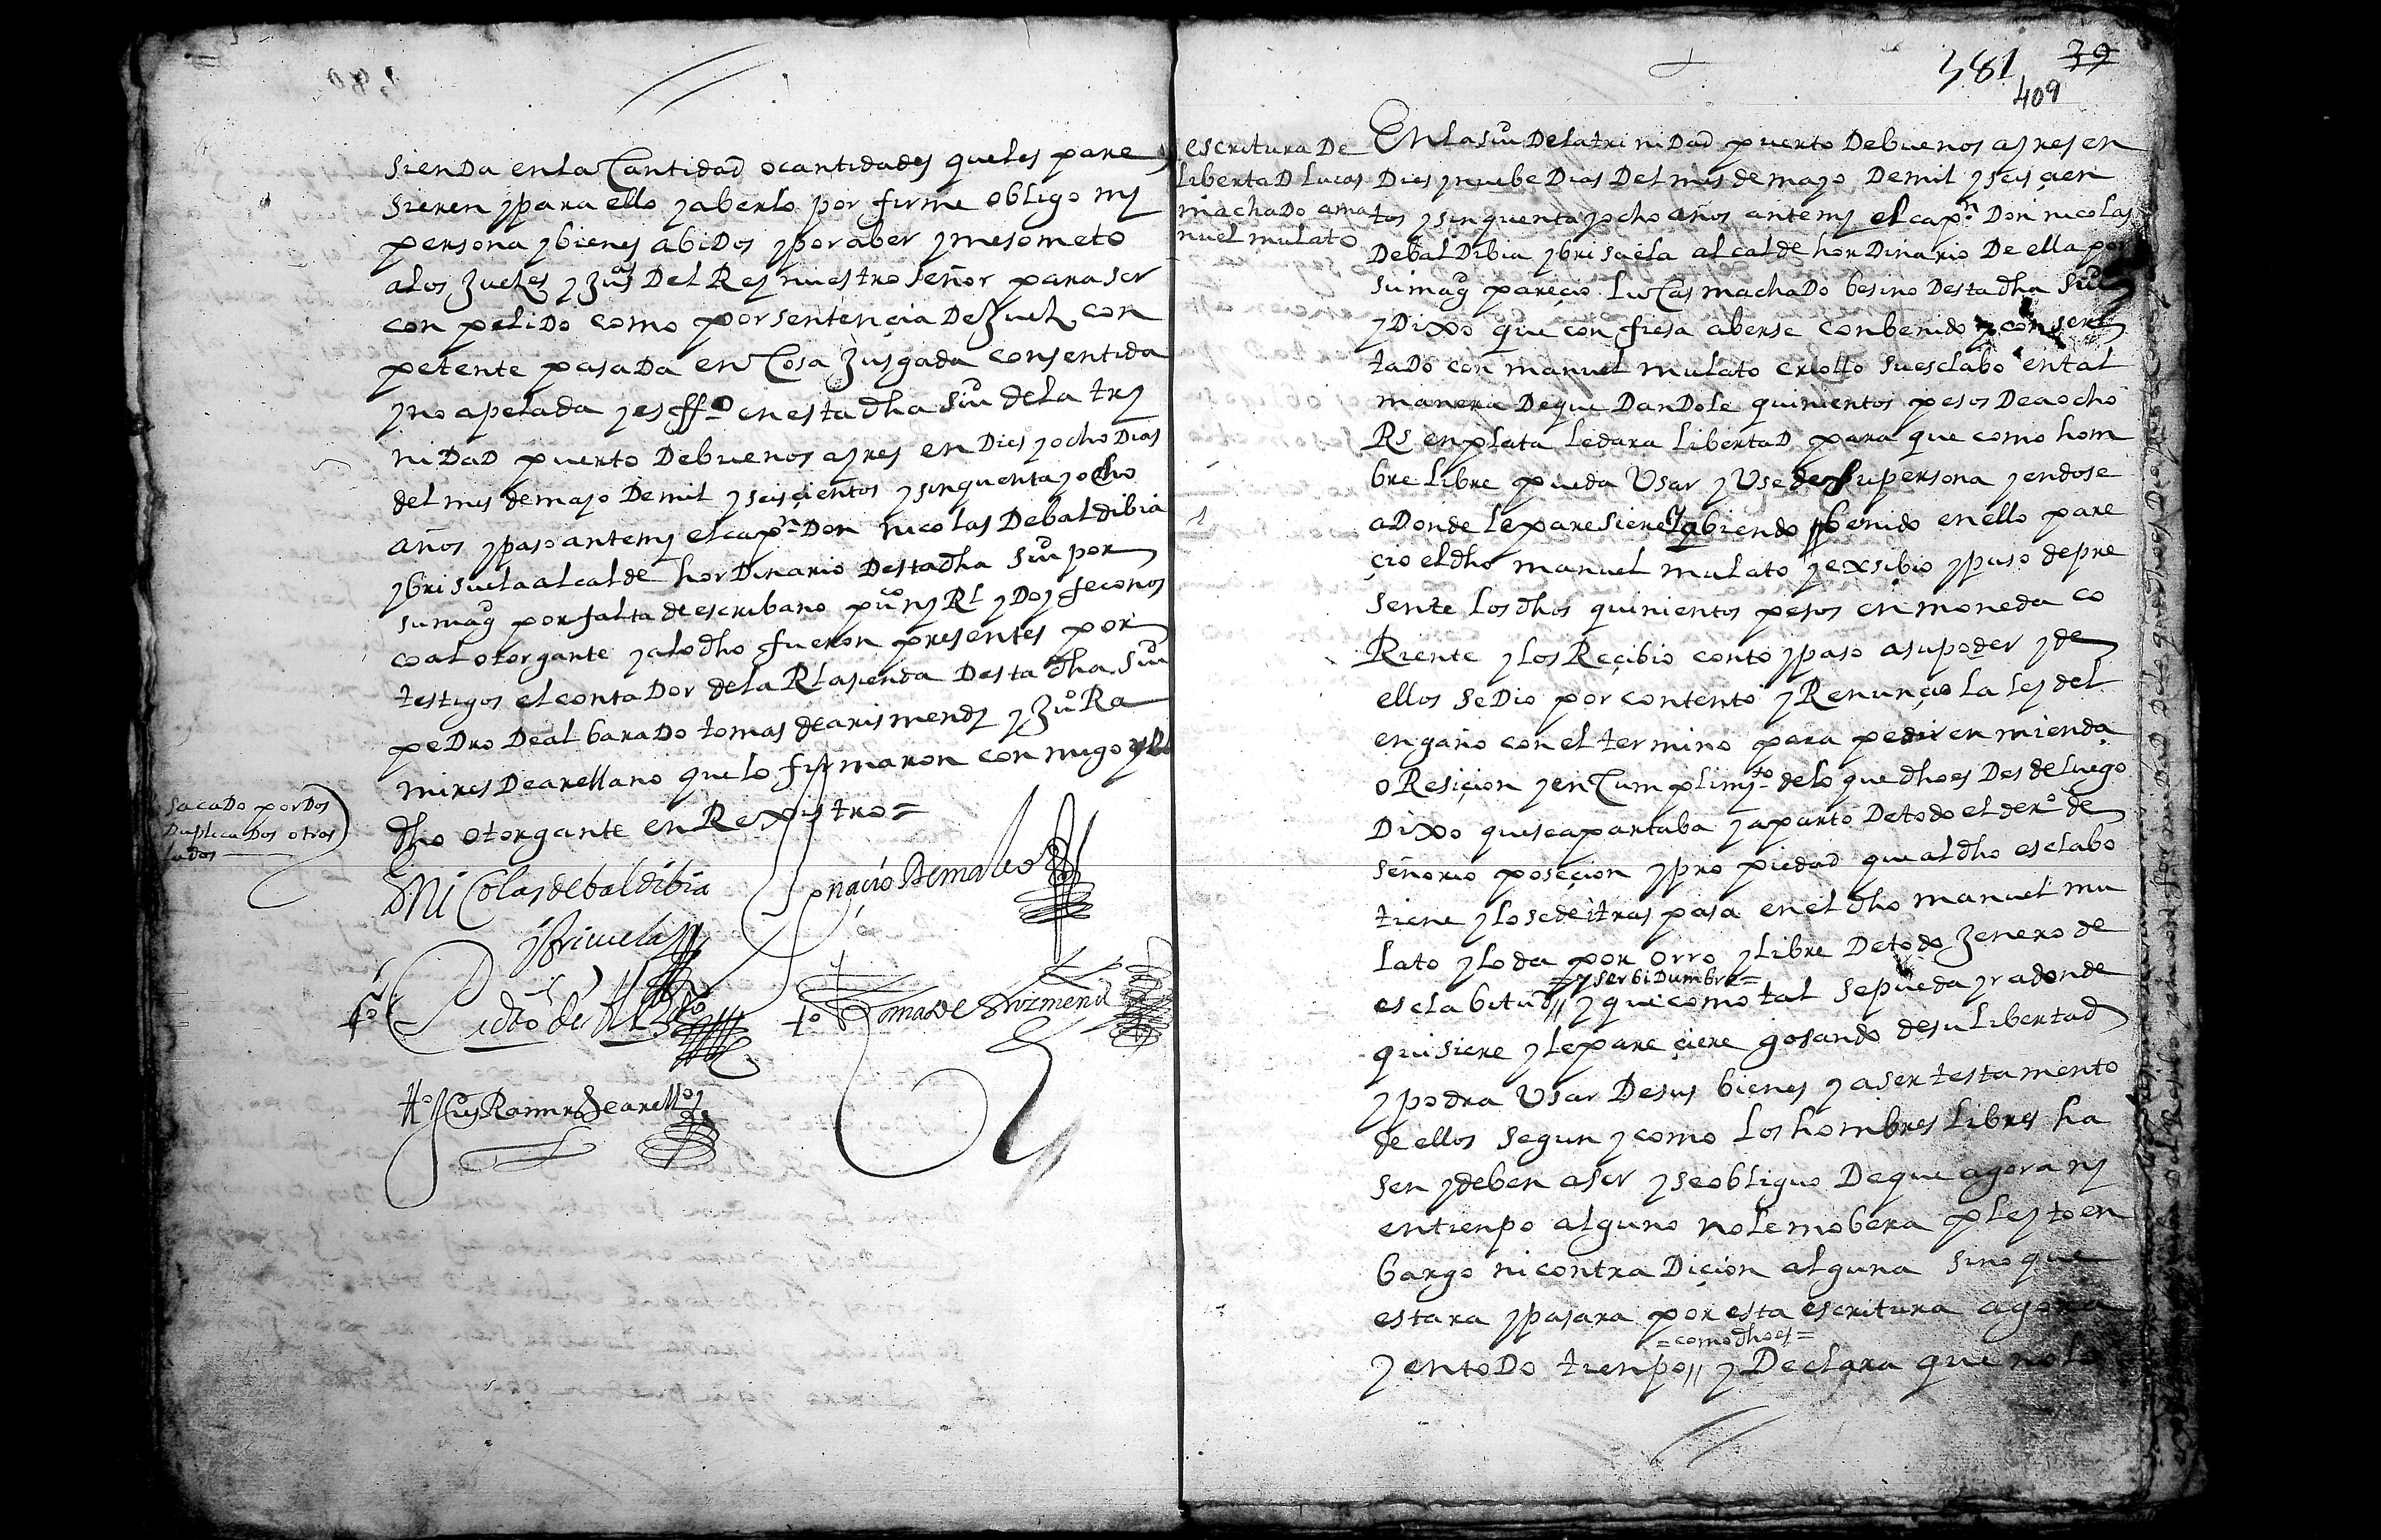 sienda en la Cantidad o cantidades que les pare
sieren y para ello y aberlo por firme obligo my
persona y bienes abidos y por aber y me someto
a los Juezes y Juas Del Rey nuestro señor para ser
conpelido como por sentençia De Juez con
petente pasada en Cosa Jusgada consentida
y no apelada y es ffo en esta dha Siu de la try
nidad puerto De buenos ayres en Dies y ocho Dias
del mes de mayo De mil y seisçientos y sinquenta y ocho
años y paso ante my el capn Don nicolas De baldibia
y brisuela alcalde hordinario Desta dha Siu por
su magd por falta de escribano puco ny Rl y Doy fe conos
co al otorgante y a lo dho fueron presentes por
testigos el contador de la Rl asienda Desta dha Siu
pedro De albarado tomas de arismendy y Juo Ra
mires De arellano que lo firmaron conmigo y el
dho otorgante en Rexistro=
sacado por Dos
Duplicados otros
lados
Dn Nicolas de baldibia
y bricuela
ygnaçio Bernaleo
to Pedro de Albdo
to Tomas de Arizmendi
to Luys Ramirs De arello
381 39
409
escritura De
libertad Lucas
machado a ma
nuel mulato
En la Siu De la trinidad puerto De buenos ayres en
Dies y nuebe Dias Del mes de mayo De mil y seisçien
tos y sinquenta y ocho años ante my el capn Don nicolas
De baldibia y brisuela alcalde hordinario De ella por
su magd pareçio Lucas machado besino Desta dha Siud
y Dixo que confiesa aberse conbenido y conser
tado con manuel mulato criollo su esclabo en tal
manera De que Dandole quinientos pesos De a ocho
Rs en plata le dara libertad para que como hom
bre libre pueda Usar y Use de su persona yendose
a Donde le paresiere y abiendo benido en ello pare
çio el dho manuel mulato y exsibio y puso de pre
sente los dhos quinientos pesos en moneda co
Riente y los Reçibio conto y paso a su poder y de
ellos se Dio por contento y Renunçio la ley del
engaño con el termino para pedir enmienda
o Resiçion y en Cumplimyto de lo que dho es Desde luego
Dixo que se apartaba y aparto De todo el dero de
señorio poseçion y propiedad que al dho esclabo
tiene y lo sede i traspasa en el dho manuel mu
lato y lo da por orro y libre De todo Jenero de
=y serbidumbre=
esclabitud // y que como tal se pueda yr a donde
quisiere y le pareçiere gosando de su libertad
y podra Usar De sus bienes y aser testamento
de ellos segun y como los hombres libres ha
sen y deben aser y se obliguo De que agora ny
en tienpo alguno no le mobera pleyto en
bargo ni contradiçion alguna sino que
estara y pasara por esta escritura agora
=como dho es=
y en todo tienpo // y Declara que no lo